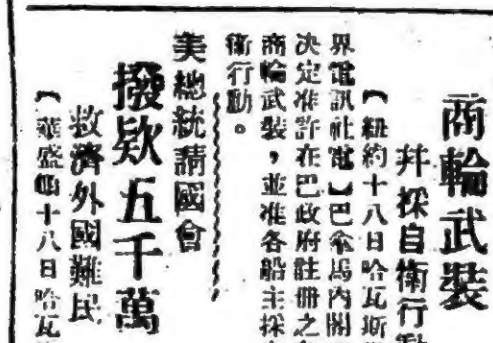 商輪武裝
幷採自衛行動
【紐約十八日哈瓦斯
界電訊社電】巴拿馬內閣
决定准許在巴政府註冊之
商輪武裝，並准各船主採
衛行動。
美總統請國會
撥欵五千萬
救濟外國難民
【華盛頓十八日哈瓦